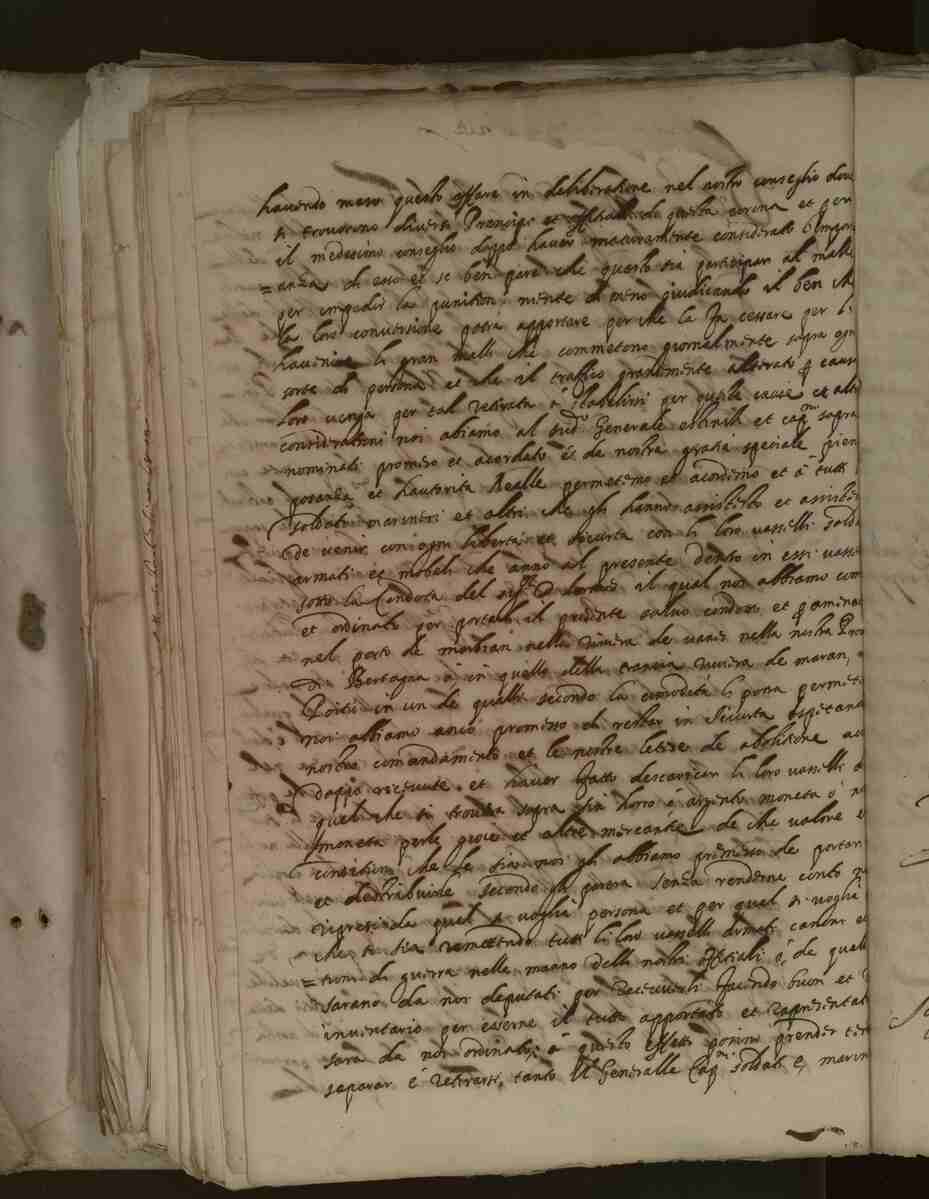 havendo messo questo affare in deliberatione nel nostro conseglio dove
si trovorono diversi Prencipi et offitiali di questa corona et per
il medesimo conseglio doppo haver maturamente considerato l'import
=anza di esso et se ben pare che questo sia participar al malle
per impedir la punition, niente di meno giudicando il ben che
la loro conversione potrà apportare per che la fa cessare per l
havenire li gran malli che commetono giornalmente sopra ogni
sorte di persona et che il traffico grandemente alterato p causa
loro venga per tal retirata à stabelirsi per queste cause et altre
considerationi noi abiamo al sudo Generale et capni sopra
nominati promesso et acordato et de nostra gratia speciale pien
posanza et hautorita Realle permetemo et acordemo et à tutti
soldati marineri et altri che gli hanno assistesto et assiste
de venir con ogni libertà et sicurta con li loro vasselli solda
armati et mobeli che anno al presente dento in essi vasse
sotto la Condota del il qual noi abbiamo com
et ordinato per portar il presente salvo condoto et
nel porto de morbian nella riviera de vanes nella nostra Pro
di Bertagna ò in quello della riviera de maran,
Poitu in un de quelli secondo la comodità li potra permete
noi abbiamo ancò promesso di restar in sicurta aspetand
nostro comandamento et le nostre letere de abolitione
doppo recevute et haver fatto descaricar li loro vasselli
quel che si trovera sopra sia horro ò argento moneta ò n
moneta perle gioie et altre mercantie de che valore
conditione che le sia noi gli abbiamo promesso de portar
et destribuirle secondo gli parera senza renderne conto n
ripresi da qual si voglia persona et per qual si voglia
che si sia remettendo tutti li loro vasselli armati canoni et
=tioni di guerra nelle mano delli nostri offitiali ò, de quelli
sarano da noi deputati per recevverli facendo buon et
inventario per esserne il tutto apportato et rapresentato
sara da noi ordinato; à questo effetto possino prender terra
separar é retirarsi, tanto il Generalle Capni soldati e, marin